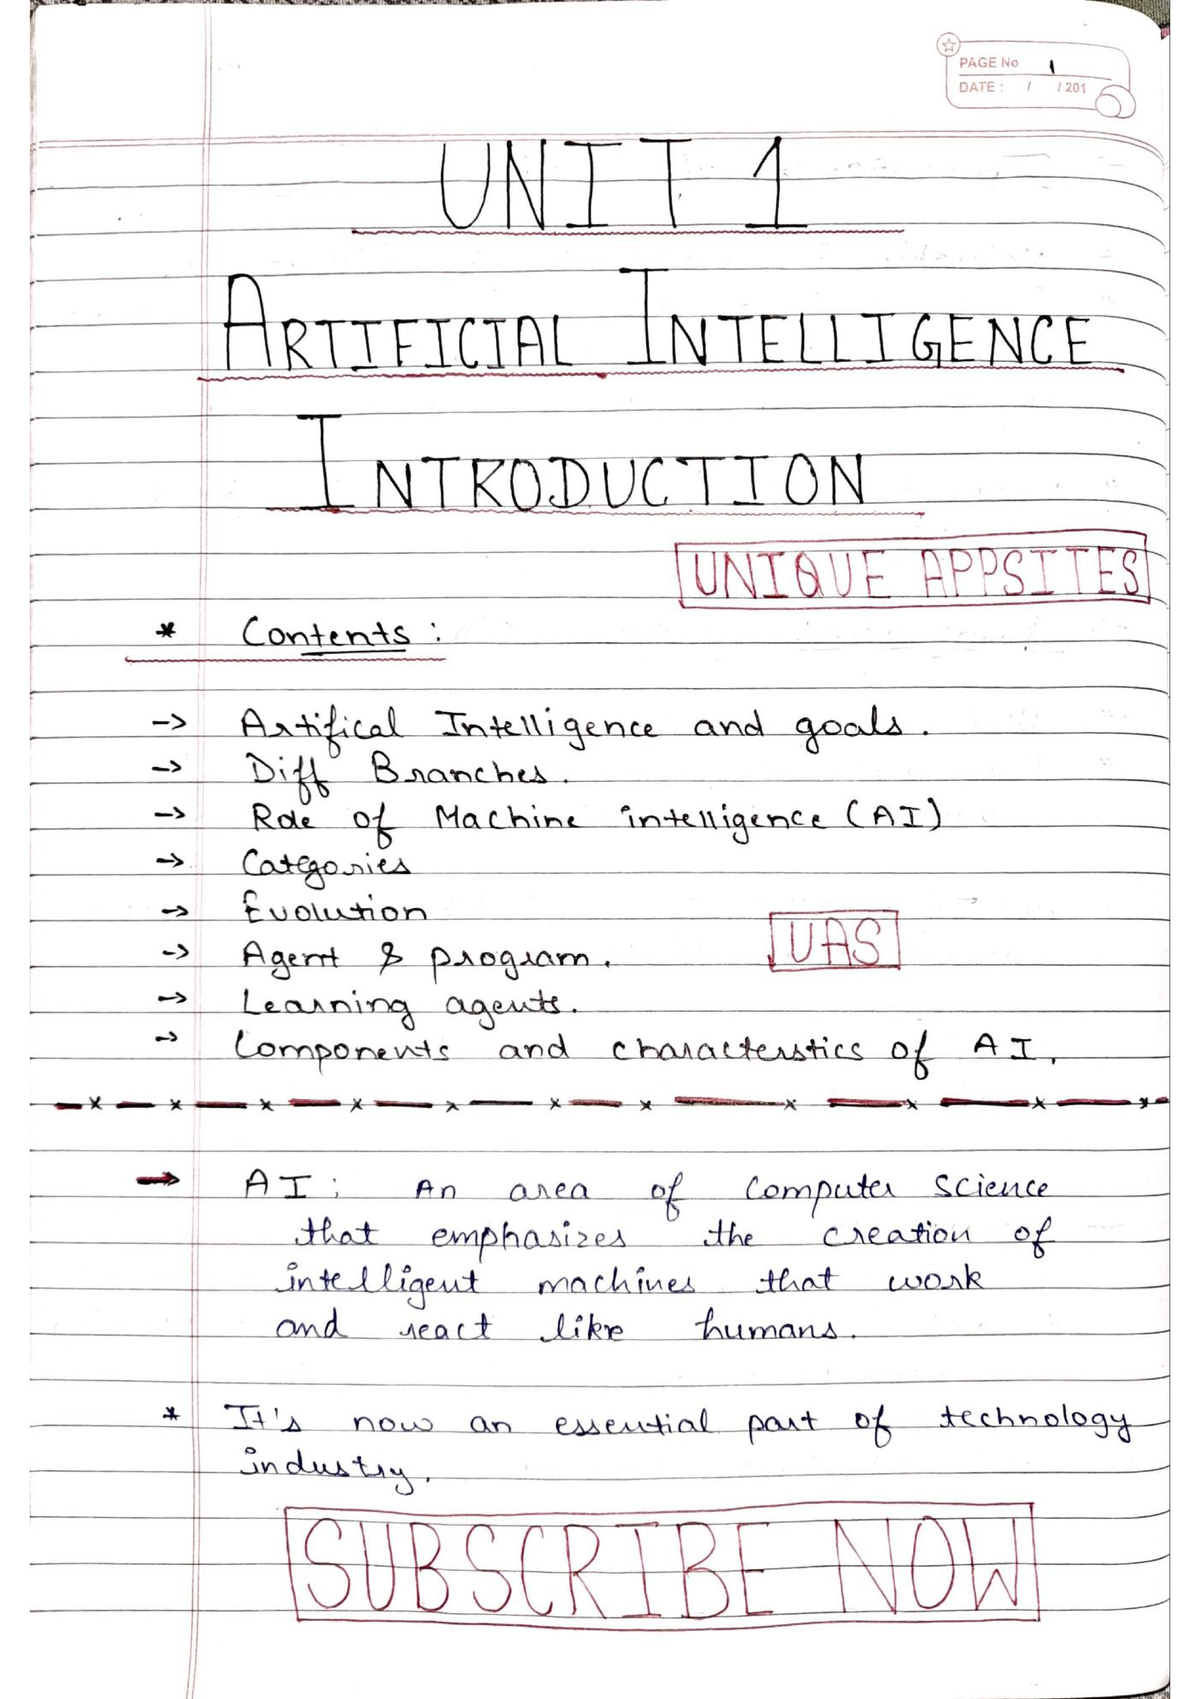 PAGE No 1
DATE : / / 201
UNIT 1
ARTIFICIAL INTELLIGENCE
INTRODUCTION
UNIQUE APPSITES
* Contents :
-> Artifical Intelligence and goals.
-> Diff Branches.
-> Role of Machine intelligence (AI)
-> Categories
-> Evolution
UAS
-> Agent & program.
-> Learning agents.
-> Components and characterstics of AI.
→ AI : An area of Computer Science
that emphasizes the creation of
intelligent machines that work
and react like humans.
* It's now an essential part of technology
industry.
SUBSCRIBE NOW